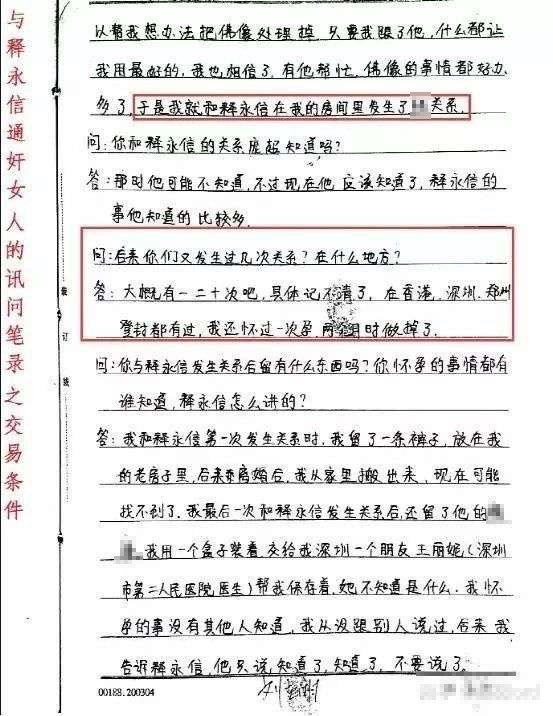 与释永信通奸女人的讯问笔录之交易条件
装
订
线
以帮我想办法把佛像处理掉,只要我跟了他,什么都让
我用最好的,我也相信了,有他帮忙,佛像的事情都好办
多了,于是我就和释永信在我的房间里发生了关系.
问:你和释永信的关系庞超知道吗?
答:那时他可能不知道,不过现在他应该知道了,释永信的
事他知道的比较多.
问:后来你们又发生过几次关系?在什么地方?
答:大概有一二十次吧,具体记不清了,在香港,深圳.郑州
登封都有过,我还怀过一次孕.两个月时做掉了.
问:你与释永信发生关系后留有什么东西吗?你怀孕的事情都有
谁知道,释永信怎么讲的?
答:我和释永信第一次发生关系时,我留了一条裤子,放在我
的老房子里,后来离婚后,我从家里搬出来,现在可能
找不到了.我最后一次和释永信发生关系后,还留了他的
,我用一个盒子装着,交给我深圳一个朋友王丽妮(深圳
市第二人民医院医生)帮我保存着,她不知道是什么.我怀
孕的事没有其他人知道,我从没跟别人说过,后来我
告诉释永信,他只说,知道了,知道了,不要说了.
00188.200304